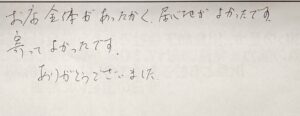 お店全体があったかく、居心地がよかったです
寄ってよかったです。
ありがとうございました